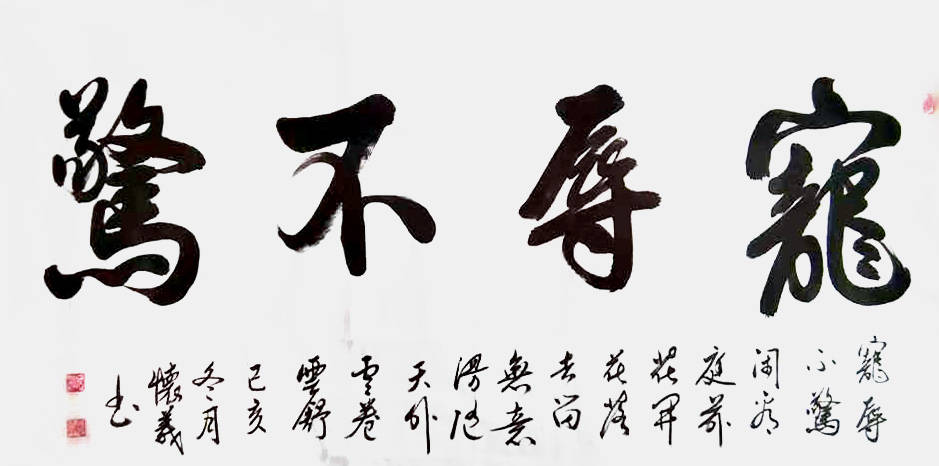 寵辱不驚
寵辱
不驚
閑看
庭前
花開
花落
去留
無意
漫隨
天外
雲卷
雲舒
己亥
冬月
懷義
书